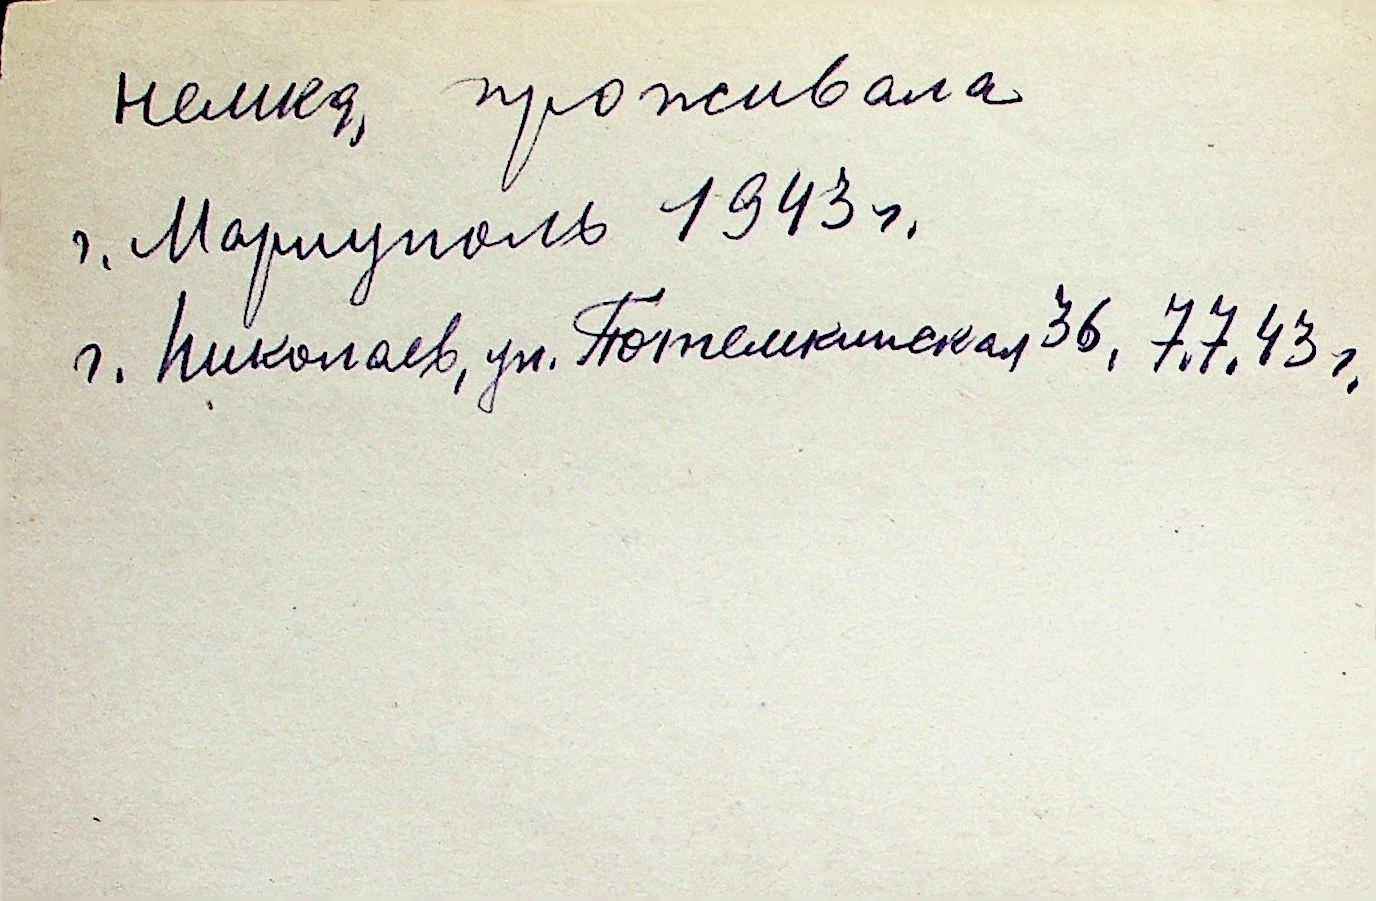 немка, проживала
г. Мариуполь 1943 г.
г. Николаев, ул. Потемкинская 36, 7.7.43 г.